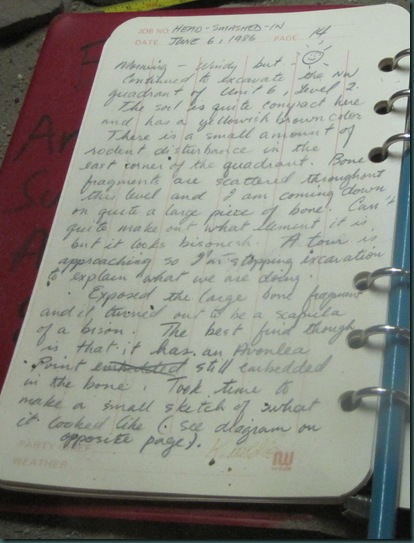 JOB NO. HEAD-SMASHED-IN
DATE JUNE 6, 1986 PAGE 14
Morning - Windy but
Continued to excavate the NW
quadrant of Unit 6, Level 2.
The soil is quite compact here
and has a yellowish brown color
There is a small amount of
rodent disturbance in the
east corner of the quadrant. Bone
fragments are scattered throughout
this level and I am coming down
on quite a large piece of bone. Can't
quite make out what element it is
but it looks bisonish. A tour is
approaching so I'm stopping excavation
to explain what we are doing.
Exposed the large bone fragment
and it turned out to be a scapula
of a bison. The best find though
is that it has an Avonlea
Point embedded still embedded
in the bone. Took time to
make a small sketch of what
it looked like (see diagram on
opposite page).
PARTY
WEATHER